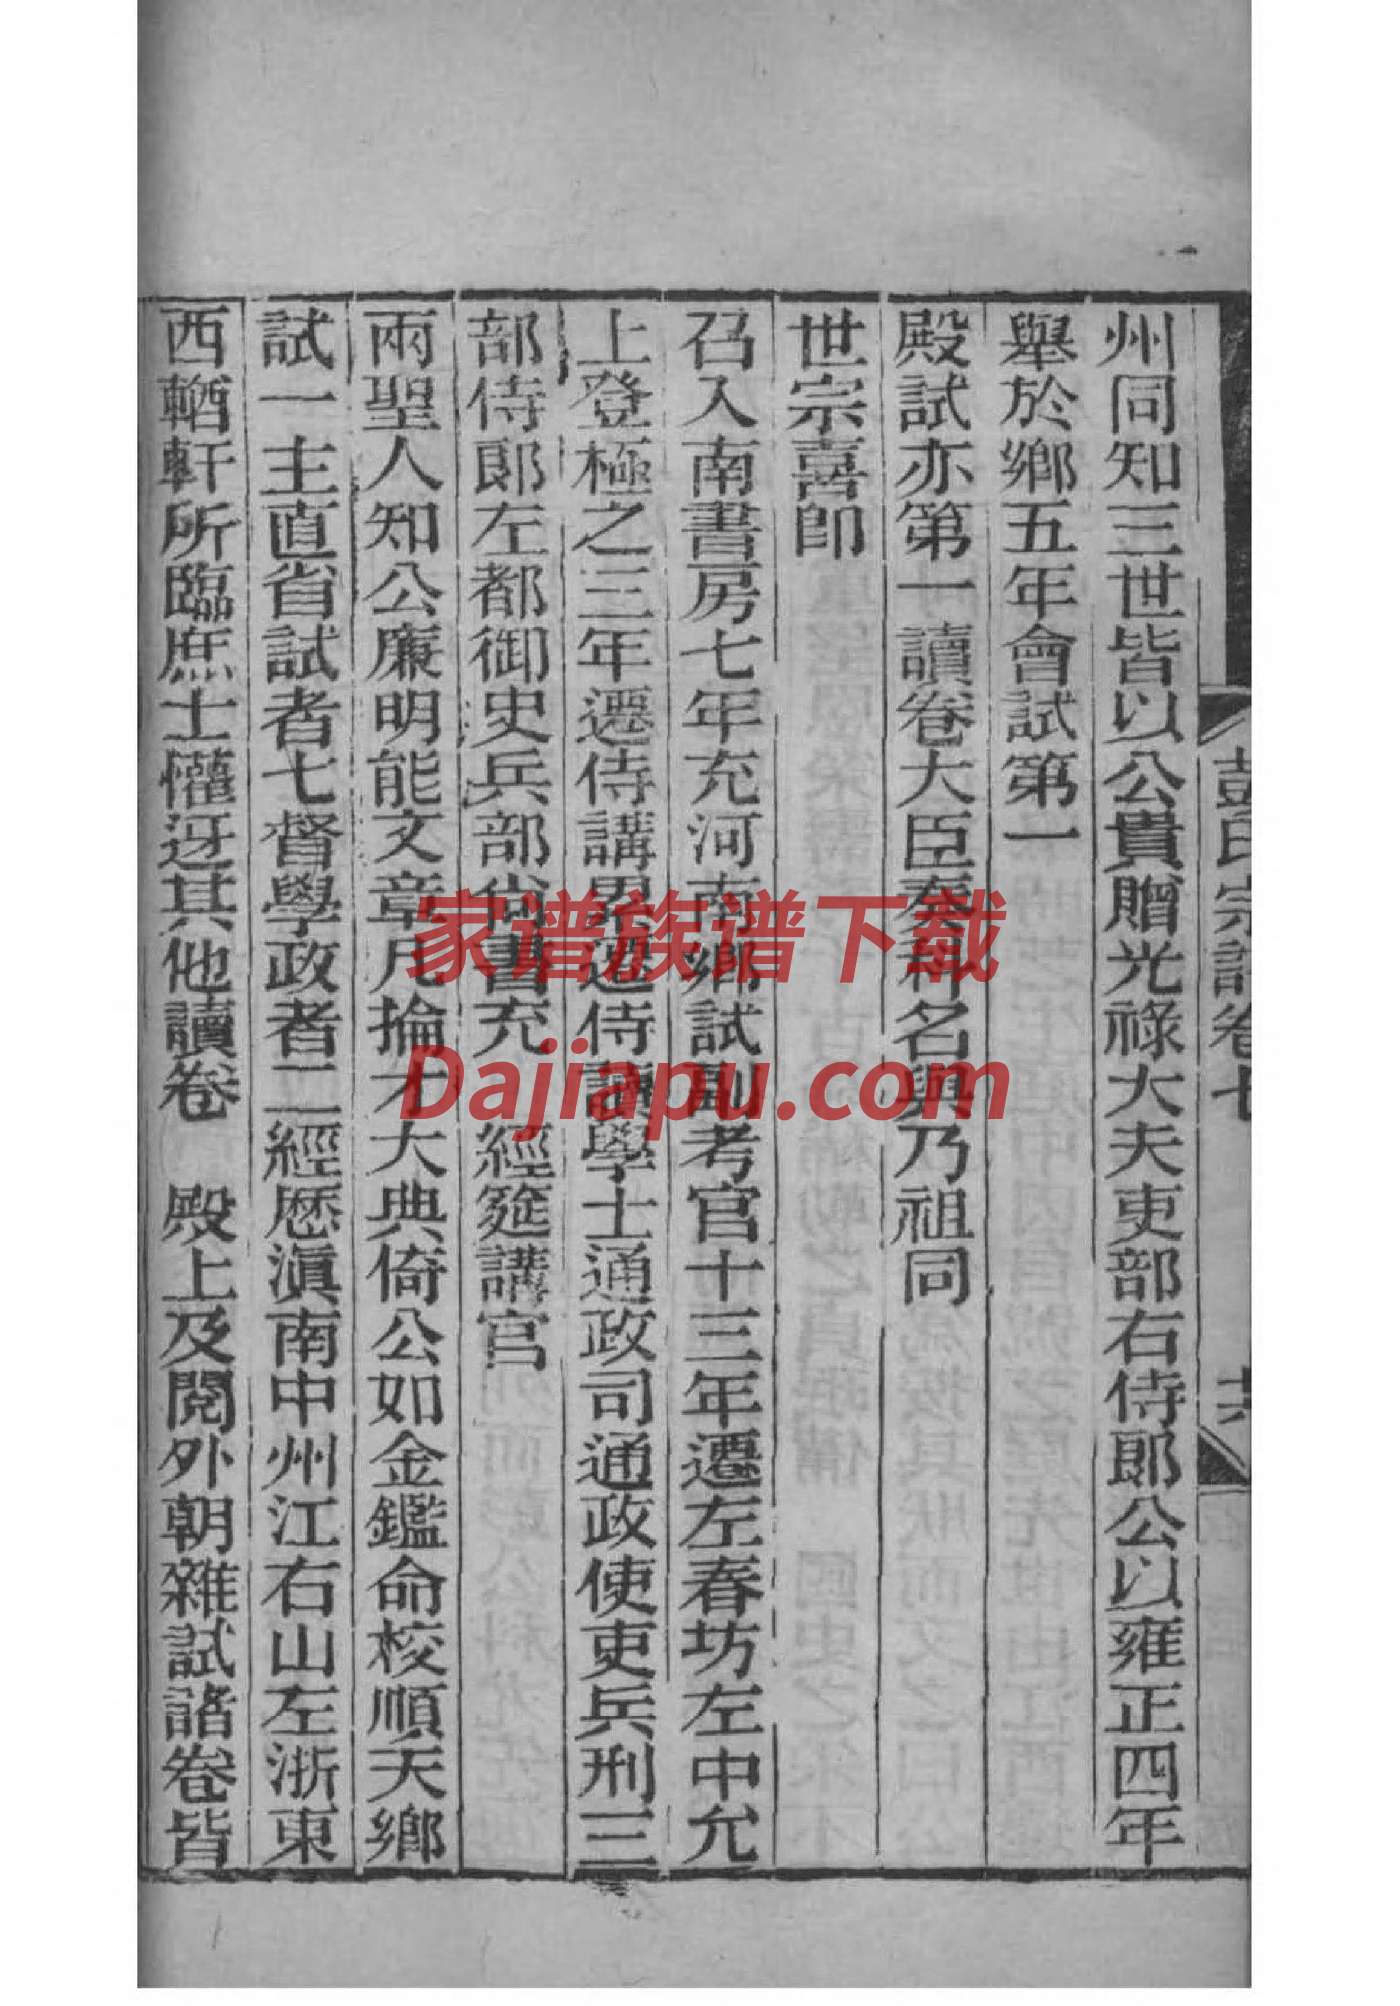 彭氏宗譜卷七
十六
州同知三世皆以公貴贈光祿大夫吏部右侍郞公以雍正四年
舉於鄉五年會試第一
殿試亦第一讀卷大臣奏科名與乃祖同
世宗喜卽
召入南書房七年充河南鄉試副考官十三年遷左春坊左中允
上登極之三年遷侍講累遷侍讀學士通政司通政使吏兵刑三
部侍郞左都御史兵部尙書充 經筵講官
兩聖人知公廉明能文章凡掄才大典倚公如金鑑命校順天鄉
試一主直省試者七督學政者二經歷滇南中州江右山左浙東
西輶軒所臨庶士懽迓其他讀卷 殿上及閱外朝雜試諸卷皆
家谱族谱下载
Dajiapu.com